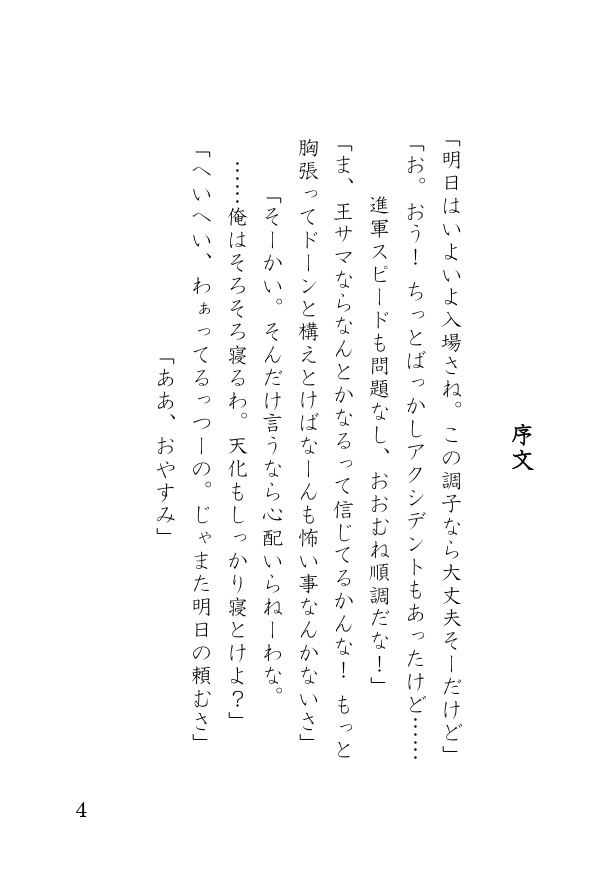 序文
「明日はいよいよ入場さね。この調子なら大丈夫そーだけど」
「お。おう！ ちっとばっかしアクシデントもあったけど……
進軍スピードも問題なし、おおむね順調だな！」
「ま、王サマならなんとかなるって信じてるかんな！ もっと
胸張ってドーンと構えとけばなーんも怖い事なんかないさ」
「そーかい。そんだけ言うなら心配いらねーわな。
……俺はそろそろ寝るわ。天化もしっかり寝とけよ？」
「へいへい、わぁってるっつーの。じゃまた明日の頼むさ」
「ああ、おやすみ」
4